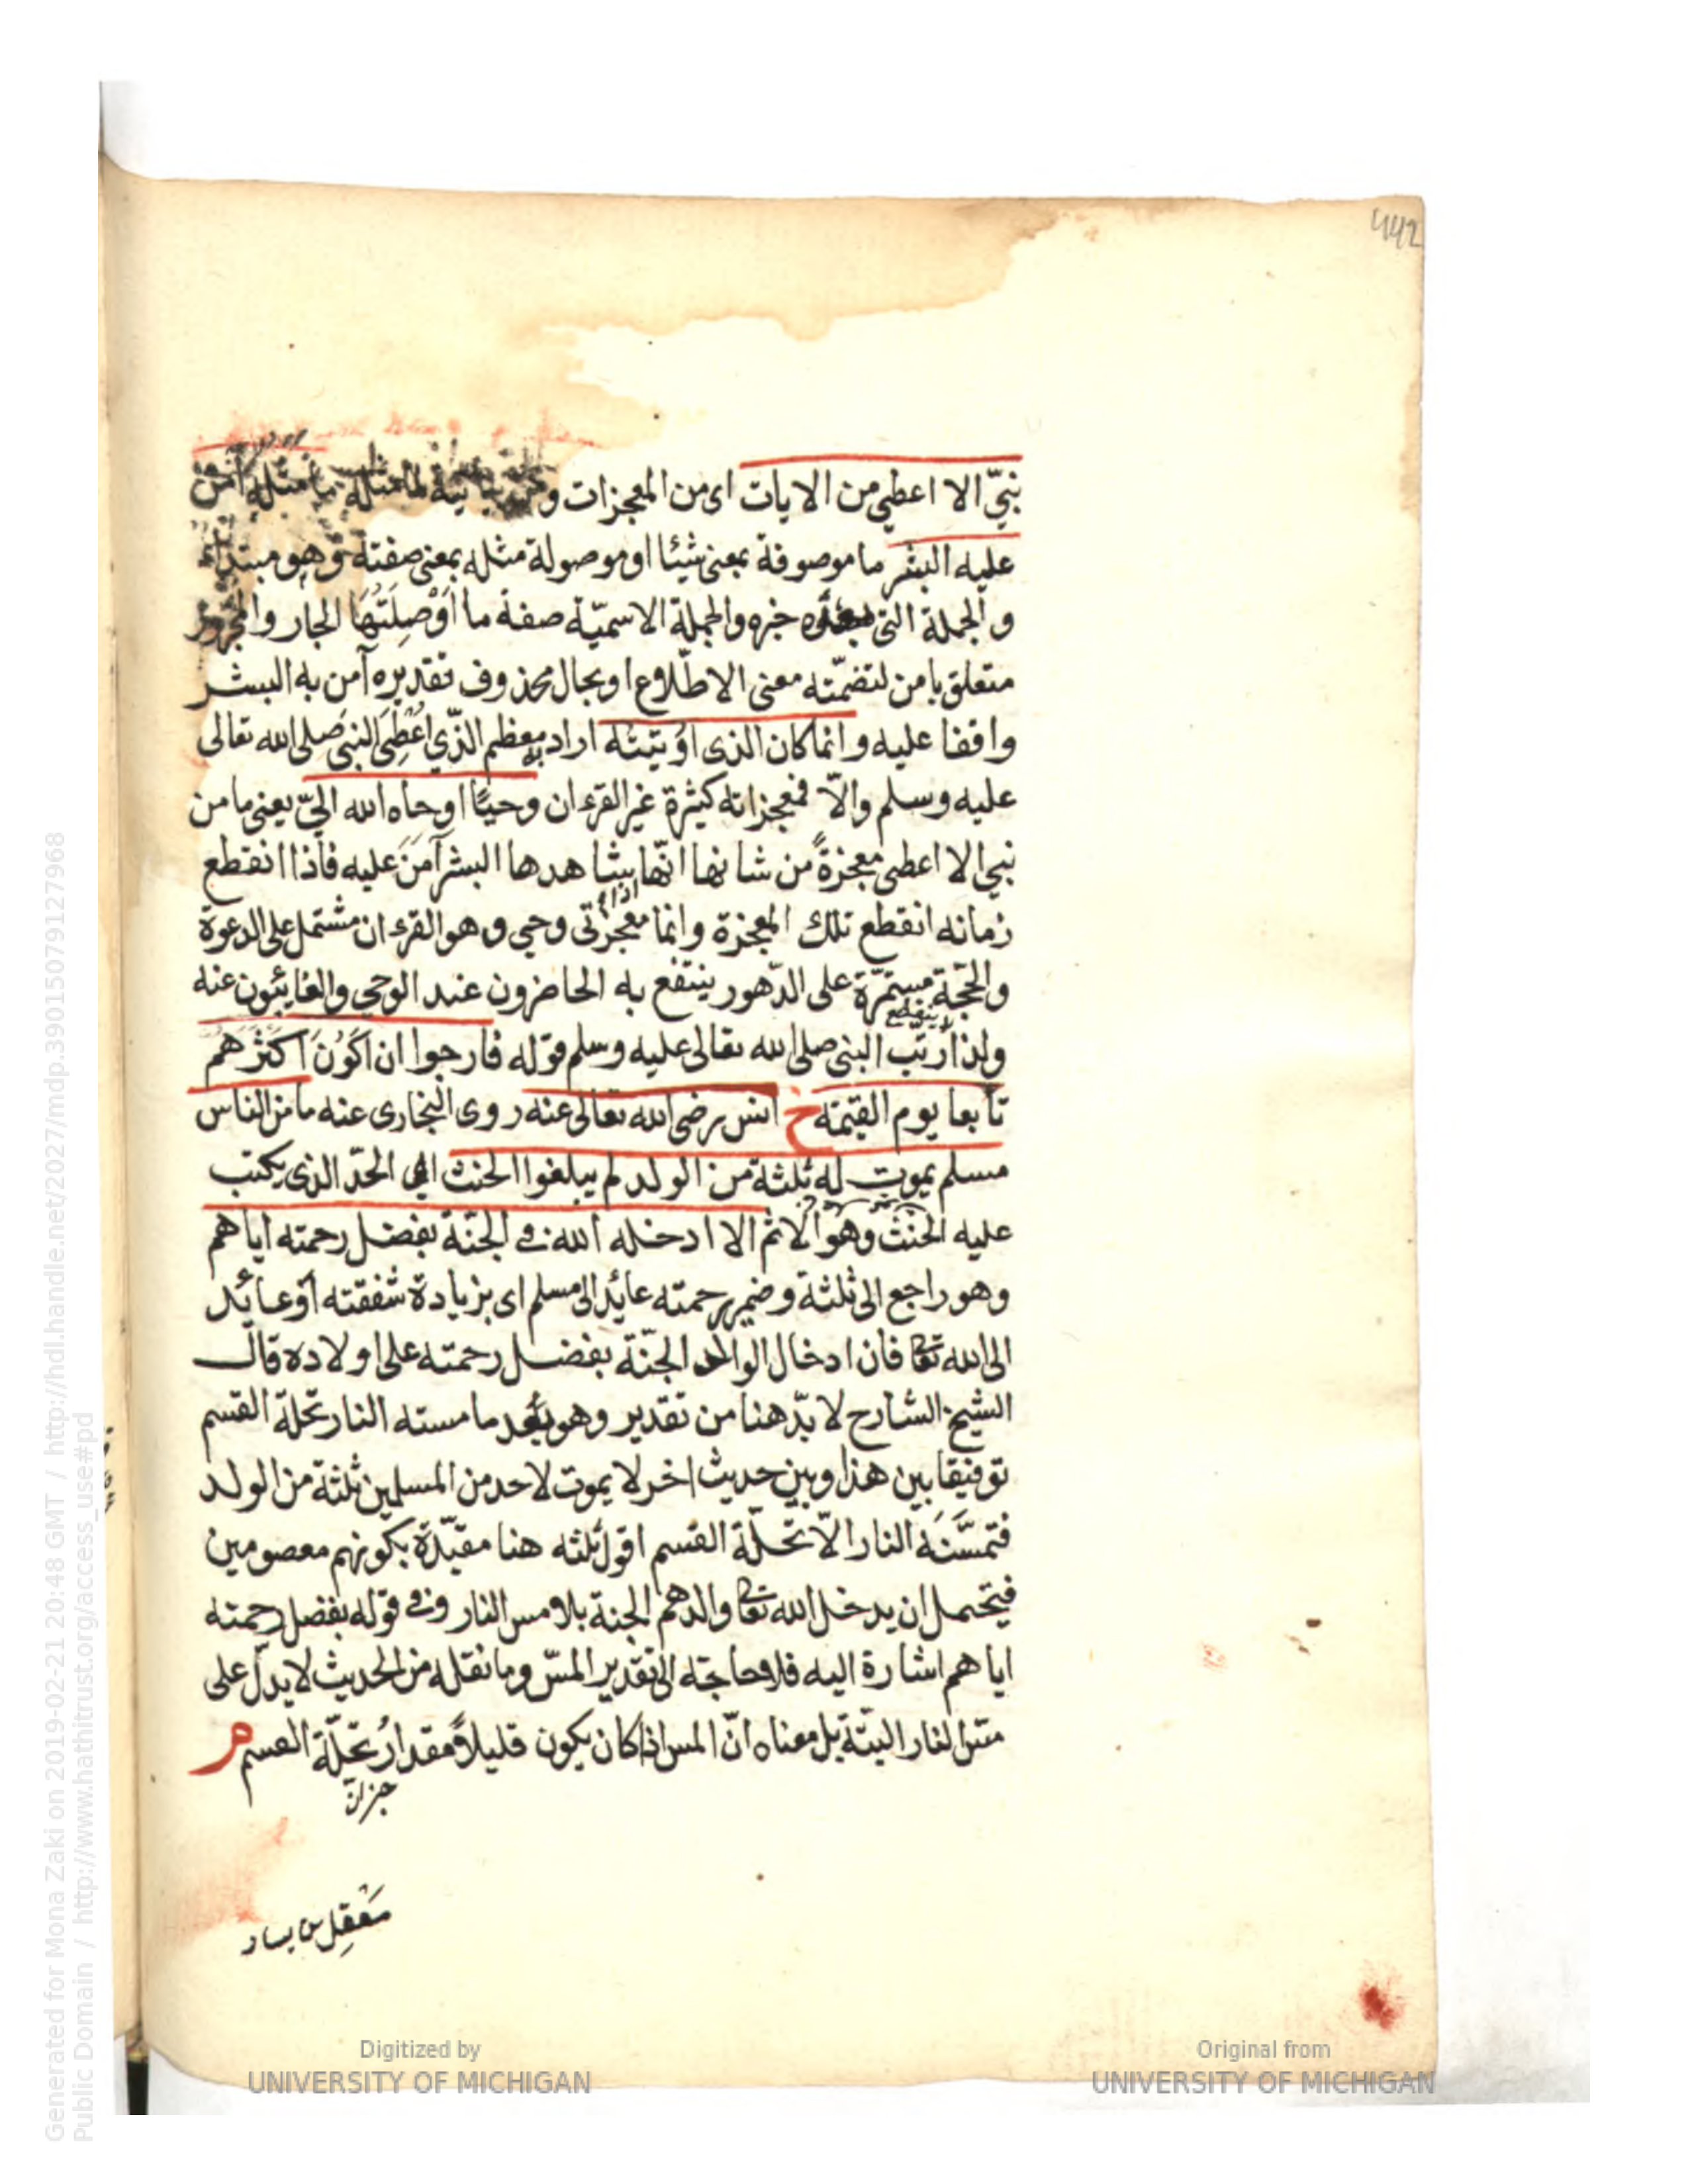 442
نبيّ الا اعطي من الايات اى من المعجزات و ما مثله آمن
عليه البشر ما موصوفة بمعنى شيئا او موصولة مثله بمعنى صفته وهو مبتداء
و الجملة التى بعده خبره والجملة الاسميّة صفة ما اَوْ صِلَتُهَا الجار والمجرور
متعلق بامن لتضمّنه معنى الاطّلاع او بحال محذوف تقديره آمن به البشر
واقفا عليه و انما كان الذى اوُتيتُه اراد به معظم الذّي اُعْطِىَ النبىّ صلى الله تعالى
عليه وسلم والاّ فمعجزاته كثيرة غير القرءان وحيًا اوحاه الله اليّ يعنى ما من
نبي الا اعطى معجزةً من شانها انّها يشاهدها البشر آمَنَ عليه فاذا انقطع
زمانه انقطع تلك المعجزة وانما معجزتى وحي وهو القرءان مشتمل على الدعوة
والحجّة مستمرّة على الدّهور ينتفع به الحاضرون عند الوحي والغايئون عنه
لا ينقطع
ولذا رتّب النبى صلى الله تعالى عليه وسلم قوله فارجوا ان اَكوُنَ اَكثَرَهم
تابعا يوم القيٰمة خ انس رضى الله تعالى عنه روى البخارى عنه ما من الناس
مسلم يموت له ثلثة من الولد لم يبلغوا الحنث اى الحدّ الذى يكتب
عليه الحنث وهو الاثم الا ادخله الله فى الجنّة بفضل رحمته اياهم
وهو راجع الى ثلثة وضمير رحمته عائد الى مسلم اى بزيادة شفقته أو عائد
الى الله تعا فان ادخال الوالد الجنّة بفضل رحمته على اولاده قال
الشيخ الشارح لا بدّ هنا من تقدير وهو بَعْد ما مسته النار تحلة القسم
توفيقا بين هذا وبين حديث اخر لا يموت لاحد من المسلمين ثلثة من الولد
فتمسَّنَه النار الاّ تحلّة القسم اقول ثلثه هنا مقيّدة بكونهم معصومين
فيتحمل ان يدخل الله تعا والدهم الجنة بلا مس النار وفى قوله بفضل رحمته
اياهم اشارة اليه فلا حاجته الى تقدير المسّ وما نقله من الحديث لا يدلّ على
مسّ النار البتّة بل معناه انّ المس اذا كان يكون قليلاً مقدارُ تحلّة القسم م
خبر انّ
مَعقِل بن يسار
Digitized by
UNIVERSITY OF MICHIGAN
Original from
UNIVERSITY OF MICHIGAN
Generated for Mona Zaki on 2019-02-21 20:48 GMT / http://hdl.handle.net/2027/mdp.39015079127968
Public Domain / http://www.hathitrust.org/access_use#pd